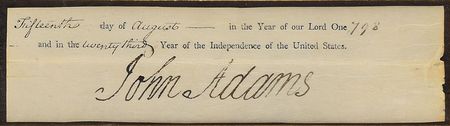 Fifteenth day of August — in the Year of our Lord One 798
and in the twenty third Year of the Independence of the United States.
John Adams